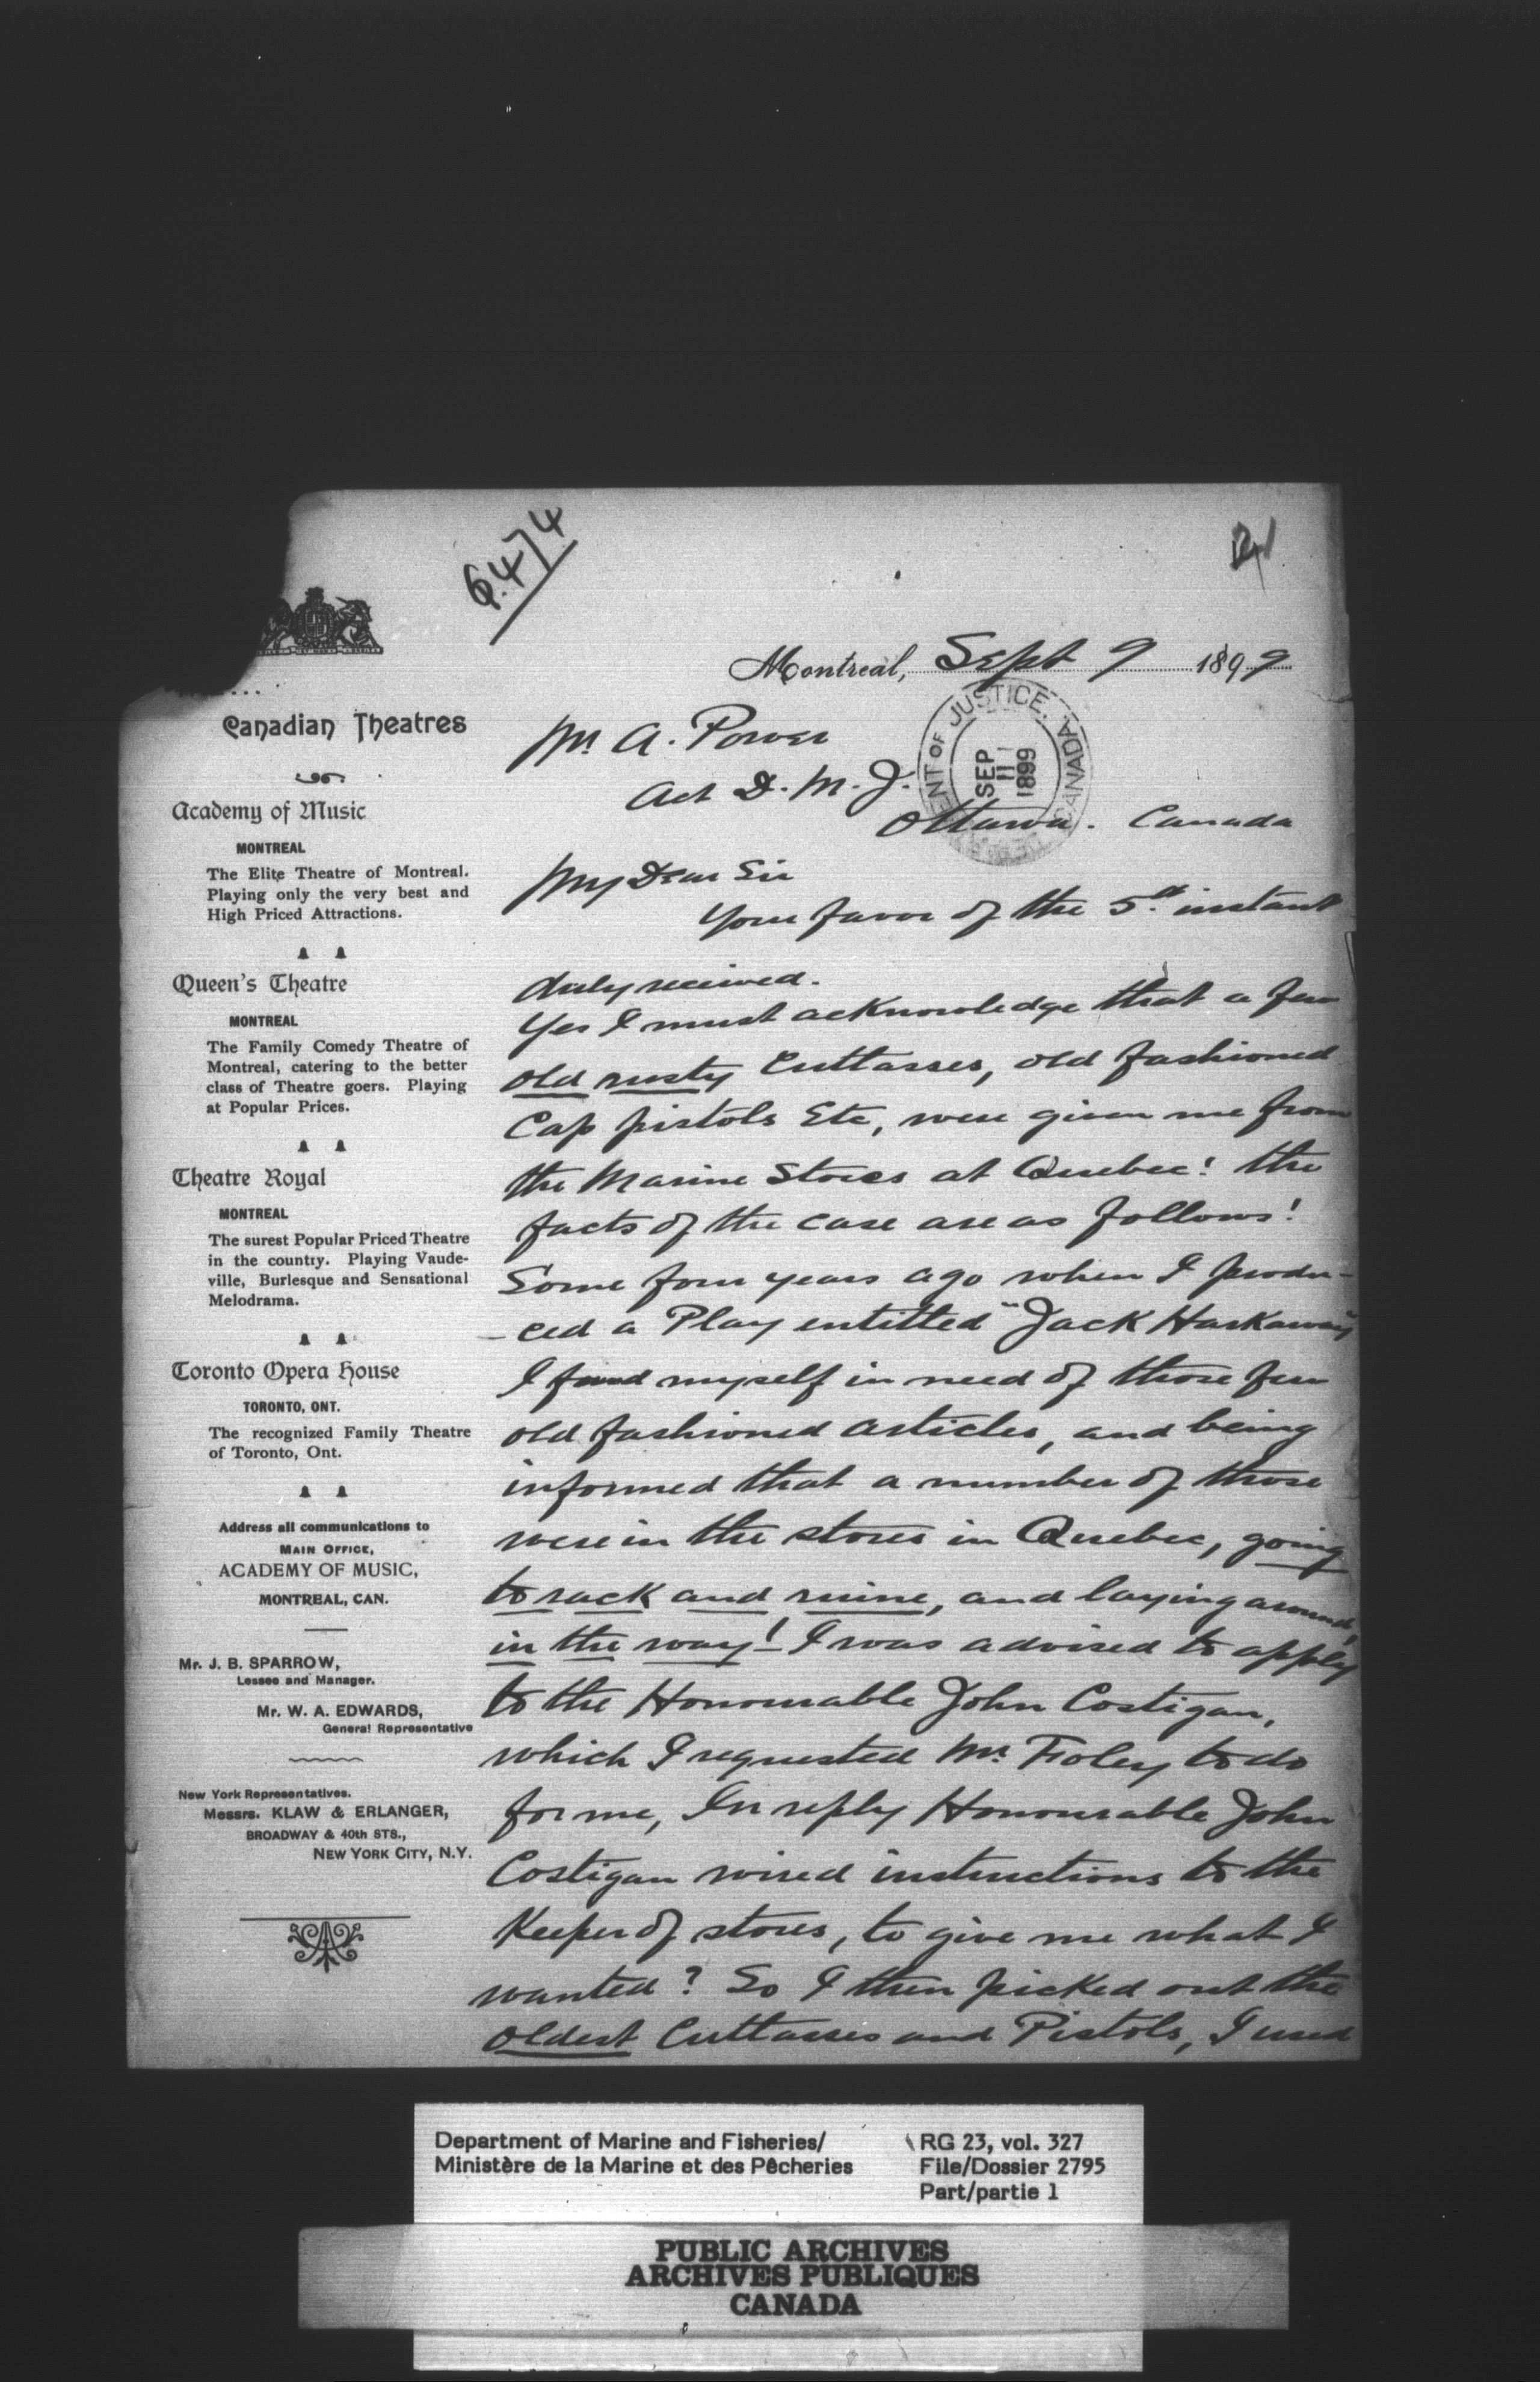 6.474
21
Montreal, Sept 9 1899
JUSTICE. CANADA
SEP
11
1899
Canadian Theatres
Academy of Music
MONTREAL
The Elite Theatre of Montreal.
Playing only the very best and
High Priced Attractions.
Queen's Theatre
MONTREAL
The Family Comedy Theatre of
Montreal, catering to the better
class of Theatre goers. Playing
at Popular Prices.
Theatre Royal
MONTREAL
The surest Popular Priced Theatre
in the country. Playing Vaude-
ville, Burlesque and Sensational
Melodrama.
Toronto Opera House
TORONTO, ONT.
The recognized Family Theatre
of Toronto, Ont.
Address all communications to
MAIN OFFICE,
ACADEMY OF MUSIC,
MONTREAL, CAN.
Mr. J. B. SPARROW,
Lessee and Manager.
Mr. W. A. EDWARDS,
General Representative
New York Representatives.
Messrs. KLAW & ERLANGER,
BROADWAY & 40th STS.,
NEW YORK CITY, N.Y.
Mr. A. Power
Act D. M. J.
Ottawa. Canada
My Dear Sir
Your favor of the 5th instant
duly received.
Yes I must acknowledge that a few
old rusty Cuttasses, old fashioned
Cap pistols Etc, were given me from
the Marine Stores at Quebec! the
facts of the case are as follows!
Some four years ago when I produ-
-ced a Play entitled "Jack Harkaway"
I found myself in need of those few
old fashioned articles, and being
informed that a number of those
were in the stores in Quebec, going
to rack and ruine, and laying around,
in the way! I was advised to apply
to the Honourable John Costigan,
which I requested Mr. Foley to do
for me, In reply Honourable John
Costigan wired instructions to the
Keeper of stores, to give me what I
wanted? So I then picked out the
oldest Cuttasses and Pistols, I used
Department of Marine and Fisheries/
Ministère de la Marine et des Pêcheries
RG 23, vol. 327
File/Dossier 2795
Part/partie 1
PUBLIC ARCHIVES
ARCHIVES PUBLIQUES
CANADA